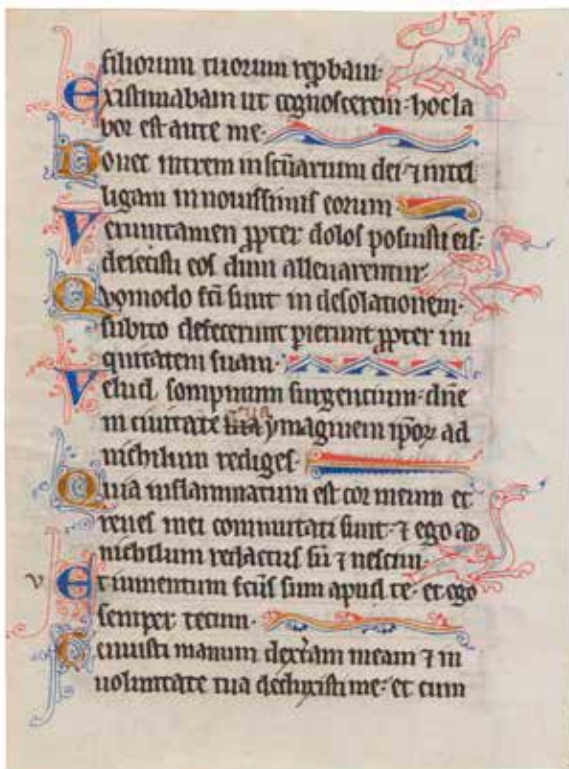 filiorum tuorum reprobavi·
Existimabam ut cognoscerem· hoc la
bor est ante me·
Donec intrem in scũarium dei· ⁊ intel
ligam in novissimis eorum
Verumtamen ꝓpter dolos posuisti eis·
deiecisti eos dum allevarentur·
Quomodo fc̃i sunt in desolationem·
subito defecerunt pierunt ꝓpter ini
quitatem suam·
Velud sompnium surgentium· dñe
in civitate tua ymaginem ip̃oꝝ ad
nichilum rediges·
Quia inflammatum est cor meum et
renes mei commutati sunt· ⁊ ego ad
nichilum redactus sũ ⁊ nescivi·
Et iumentum fc̃us sum apud te· et ego
semper tecum·
Tenuisti manum dext̃am meam ⁊ in
voluntate tua deduxisti me· et cum